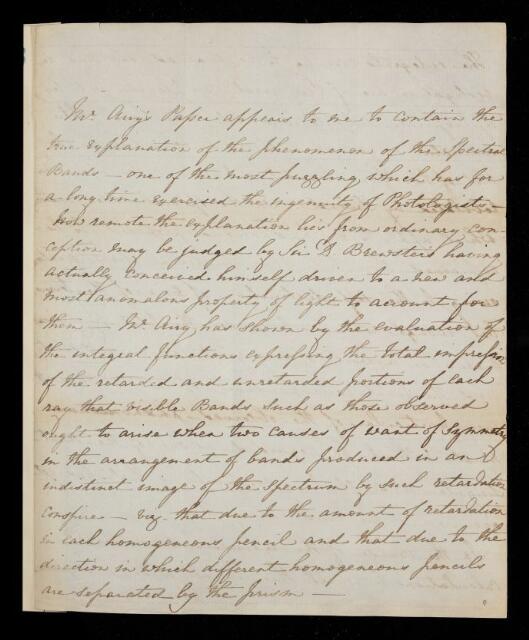 Mr. Airy's Paper appears to me to contain the
true explanation of the phenomenon of the Spectral
Bands — one of the most puzzling which has for
a long time exercised the ingenuity of Photologists —
How remote the explanation lies from ordinary con-
ception may be judged by Sir D Brewster's having
actually conceived himself driven to a new and
most anomalous property of light to account for
them — Mr. Airy has shown by the evaluation of
the integral functions expressing the total impression
of the retarded and unretarded portions of each
ray that visible Bands such as those observed
ought to arise when two causes of want of Symmetry
in the arrangement of bands produced in an
indistinct image of the spectrum by such retardation
conspire — viz. that due to the amount of retardation
in each homogeneous pencil and that due to the
direction in which different homogeneous pencils
are separated by the prism —